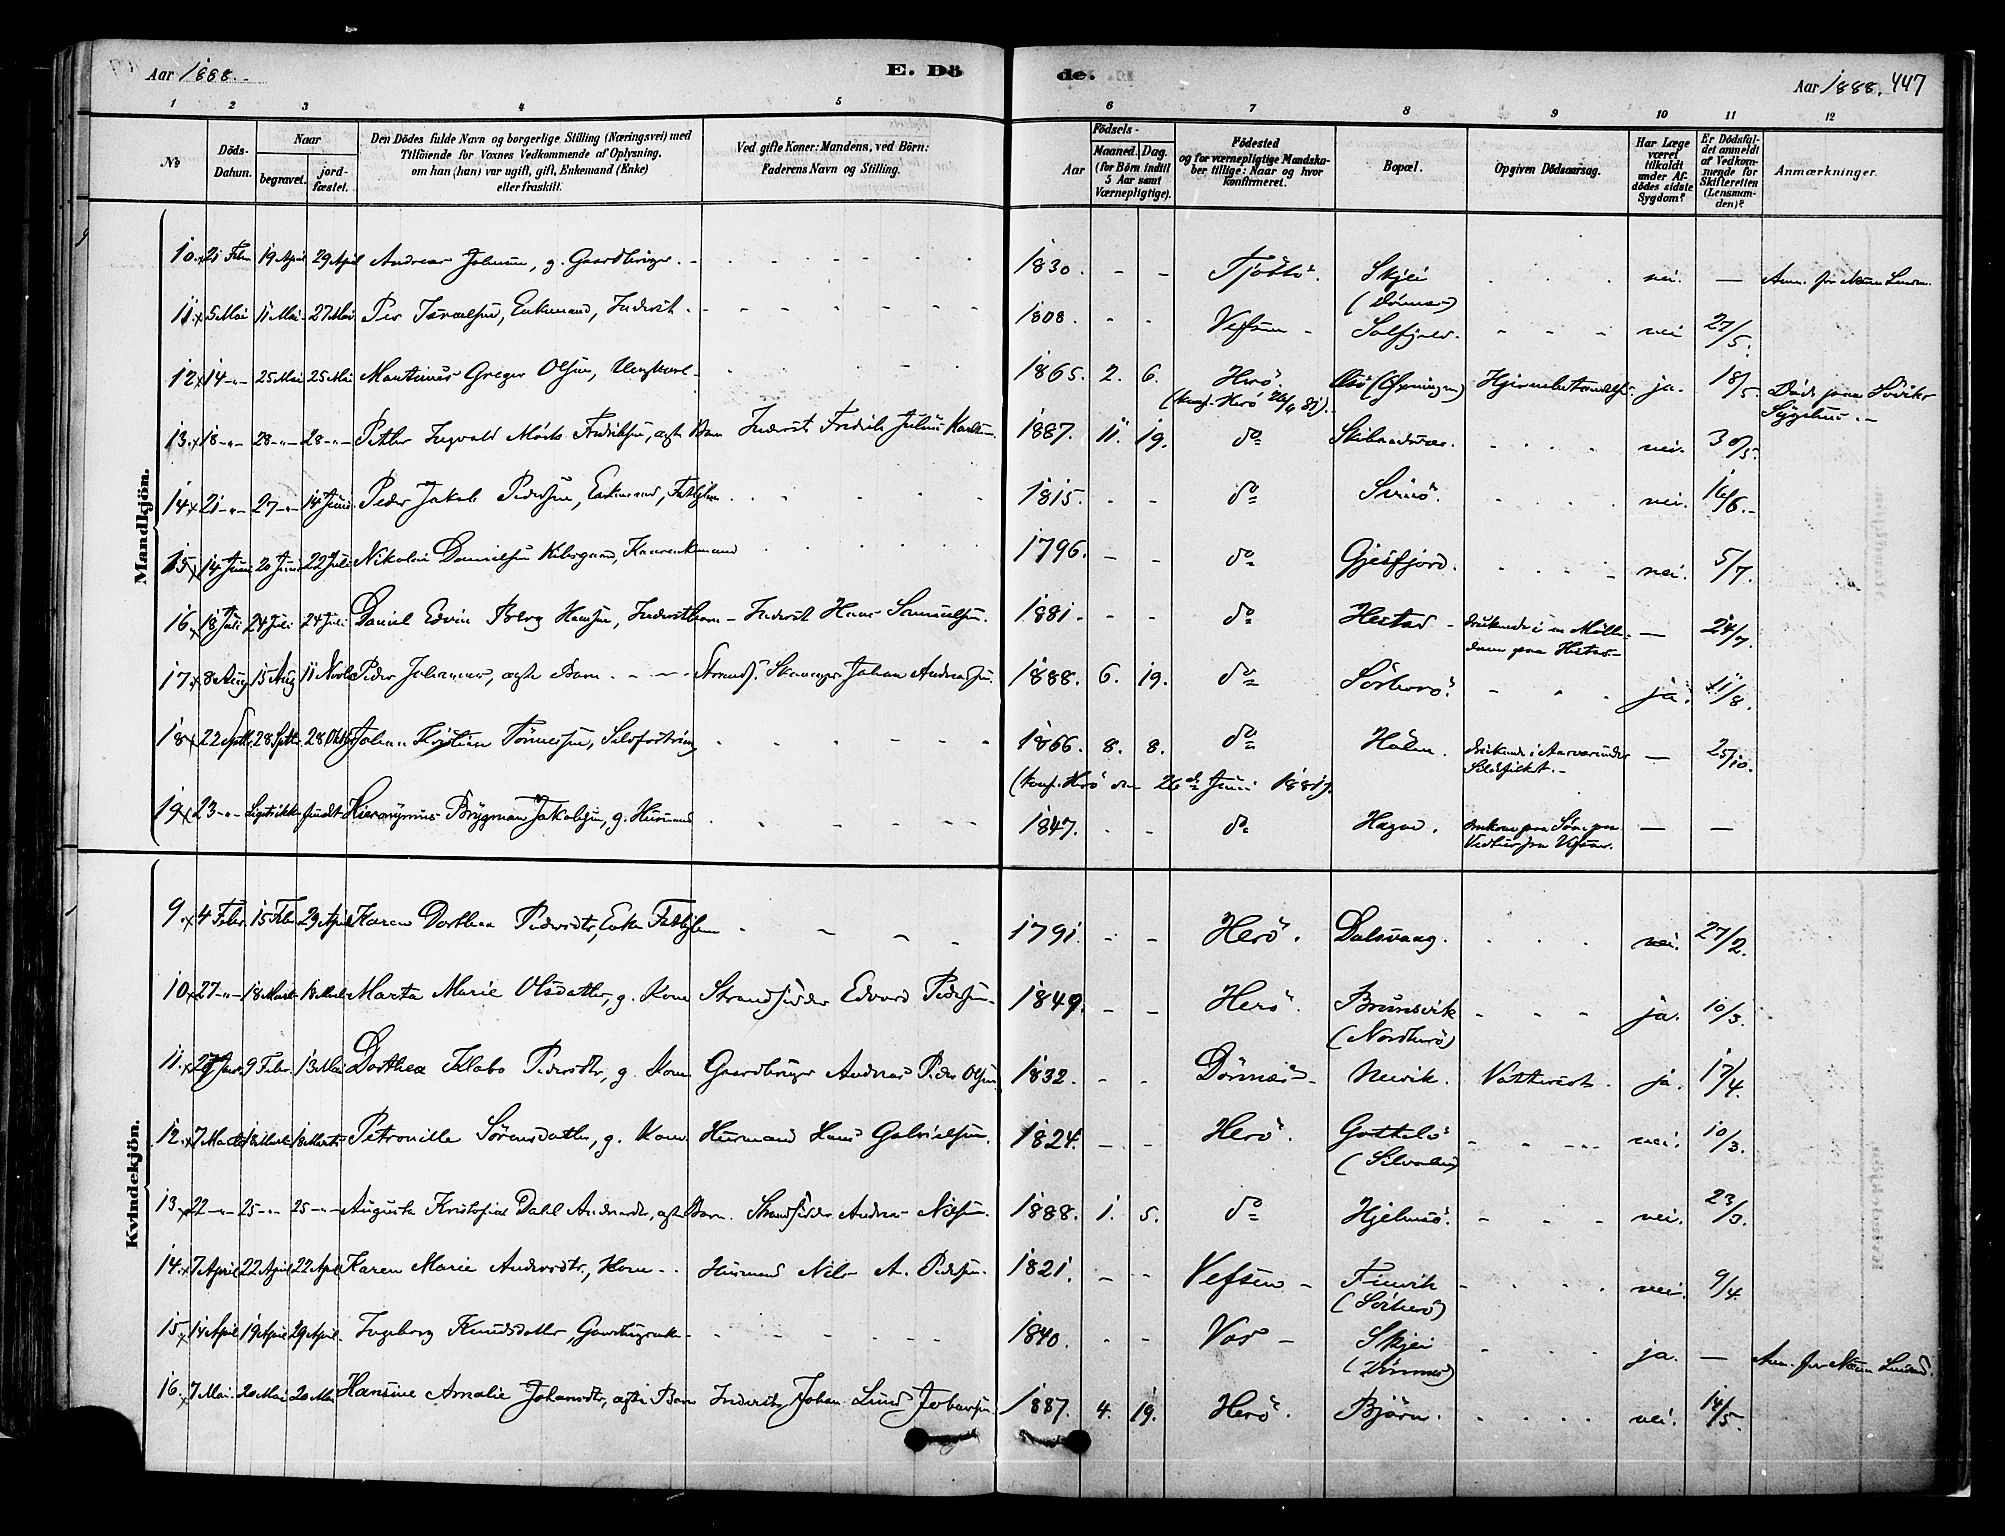 Aar 1888. E. Dö de. Aar 1888. 447
1 2 3 4 5 6 7 8 9 10 11 12
No
Döds-Datum.
Naar
begravet.
jordfæstet.
Den Dödes fulde Navn og borgerlige Stilling (Næringsvei) med
Tilföiende for Voxnes Vedkommende af Oplysning,
om han (hun) var ugift, gift, Enkemand (Enke)
eller fraskilt.
Ved gifte Koner: Mandens, ved Börn:
Faderens Navn og Stilling.
Födsels-
Aar
Maaned. Dag.
(for Börn indtil
5 Aar samt
Værnepligtige).
Födested
og for værnepligtige Mandska-
ber tillige: Naar og hvor
konfirmeret.
Bopæl.
Opgiven Dödsaarsag.
Har Læge
været
tilkaldt
under Af-
dödes sidste
Sygdom?
Er Dödsfal-
det anmeldt
af Vedkom-
mende for
Skifteretten
(Lensman-
den)?
Anmærkninger.
Mandkjön.
10. 21 Febr 19 April 29 April Andreas Johnsen, g. Gaardbruger. 1830. Tjöttö. Skjei nei. —
(Dönnes)
11. 5 Mai 11 Mai 27 Mai Per Israelsen, Enkemand, Inderst. 1808. Vefsen Solfjeld. nei 27/5.
12 14 25 Mai 25 Mai Martinus Greger Olsen, Ungkarl 1865. 2. 6. Herö. (Öxningen) ja. 18/5. Död paa Sövik
(konf. Herö 26/ 81). Sygehus.
13. 18 28 28 Petter Ingvald Mörk Fredriksen, ægte Barn Inderst Fredrik Julius Karlsen. 1887. 11. 19. do Skibaadsvær. nei. 30/5.
14 21 27 14 Juni Peder Jakob Pedersen, Enkemand, Fattiglem 1815. do nei. 16/6.
15 14 Juni 20 Juni 22 Juli Nikolai Danielsen Kilsgaard, Kaarenkemand 1796. do Gjesfjord. nei. 5/7.
16 18 Juli 24 Juli 24 Juli Daniel Edvin Berg Hansen, Inderstbarn Inderst Hans Samuelsen. 1881. do Hestad druknede i en Mölle- — 24/7.
dam paa Hestad.
17. 8 Aug 15 Aug 11 Novbr Peder Johannes, ægte Barn Strands. Johan Andreassen. 1888. 6. 19. do Sörherö. ja. 11/8.
18 22 Septbr 28 Septbr 28 Oktbr Johan Kristian Tönnessen, 1866. 8. 8. do Holm. druknede i Aarvær under — 25/10.
(konf. Herö den 26de Juni 1881). Sildefisket.
19 23 Liget ikke fundet Hieronymus Brygman Jakobsen, g. Husmand 1847. do omkom paa Söen paa — —
fra Vefsen.
Kvindekjön.
9. 4 Febr. 15 Febr 29 April Karen Dorthea Pedersdtr, Enke Fattiglem 1791. Herö. Dalsvaag. nei. 27/2.
10 27 18 Marts 18 Marts Marta Marie Olsdatter, g. Kone Strandsidder Edvard Pedersen. 1849. Herö Brunsvik ja. 10/3.
(Nordherö)
11. 27 Janr. 9 Febr. 13 Mai Dorthea Klabo Pedersdtr, g. Kone Gaardbruger Andreas Peder Olsen 1832. Dönnes Nervik. Vattersot. ja. 17/4.
12. 7 Marts 18 Marts 18 Marts Petronille Sörensdatter, g. Kone Husmand Hans Gabrielsen. 1824. Herö. nei. 10/3.
(Silvalen)
13 22 25 25 Augusta Kristofia Dahl Andersdtr, ægte Barn. Strandsidder Andreas Nilsen. 1888. 1. 5. do Hjelmsö. nei. 23/3.
14. 7 April 22 April 22 April Karen Marie Andersdtr., Kone Husmand Nils A. Pedersen. 1821. Vefsen Finvik nei. 9/4.
(Sörherö)
15 14 April 19 April 29 April Ingeborg Knudsdatter, 1840. Vos Skjei ja. —
(Dönnes)
16. 7 Mai 20 Mai 20 Mai Hansine Amalie Johansdtr, ægte Barn Inderst Johan Lund Johansen 1887. 4. 19. Herö. Björn. nei. 14/5.